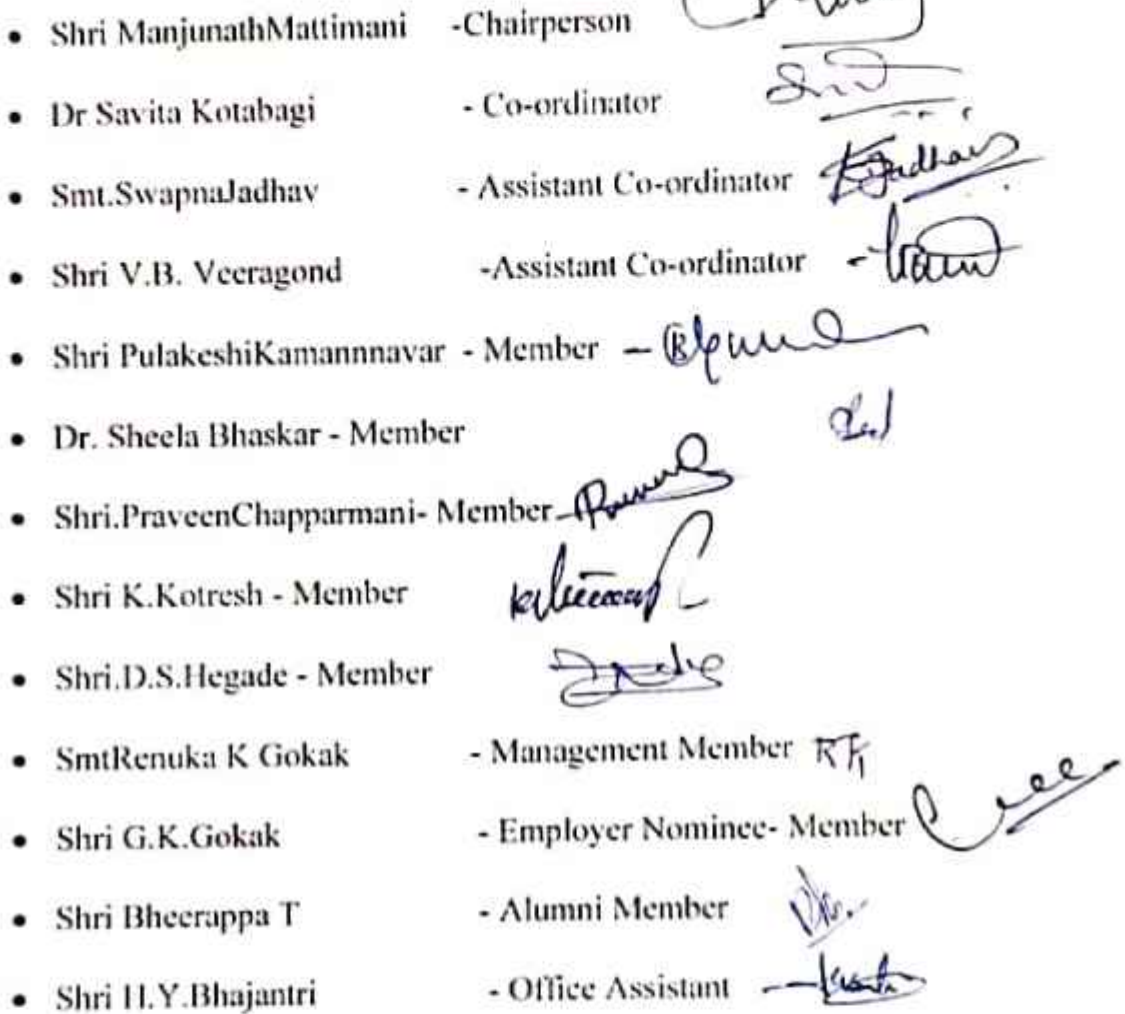 • Shri ManjunathMattimani -Chairperson
• Dr Savita Kotabagi - Co-ordinator
• Smt.SwapnaJadhav - Assistant Co-ordinator
• Shri V.B. Veeragond -Assistant Co-ordinator -
• Shri PulakeshiKamannnavar - Member -
• Dr. Sheela Bhaskar - Member
• Shri.PraveenChapparmani- Member
• Shri K.Kotresh - Member
• Shri.D.S.Hegade - Member
• SmtRenuka K Gokak - Management Member
• Shri G.K.Gokak - Employer Nominee- Member
• Shri Bheerappa T - Alumni Member
• Shri H.Y.Bhajantri - Office Assistant